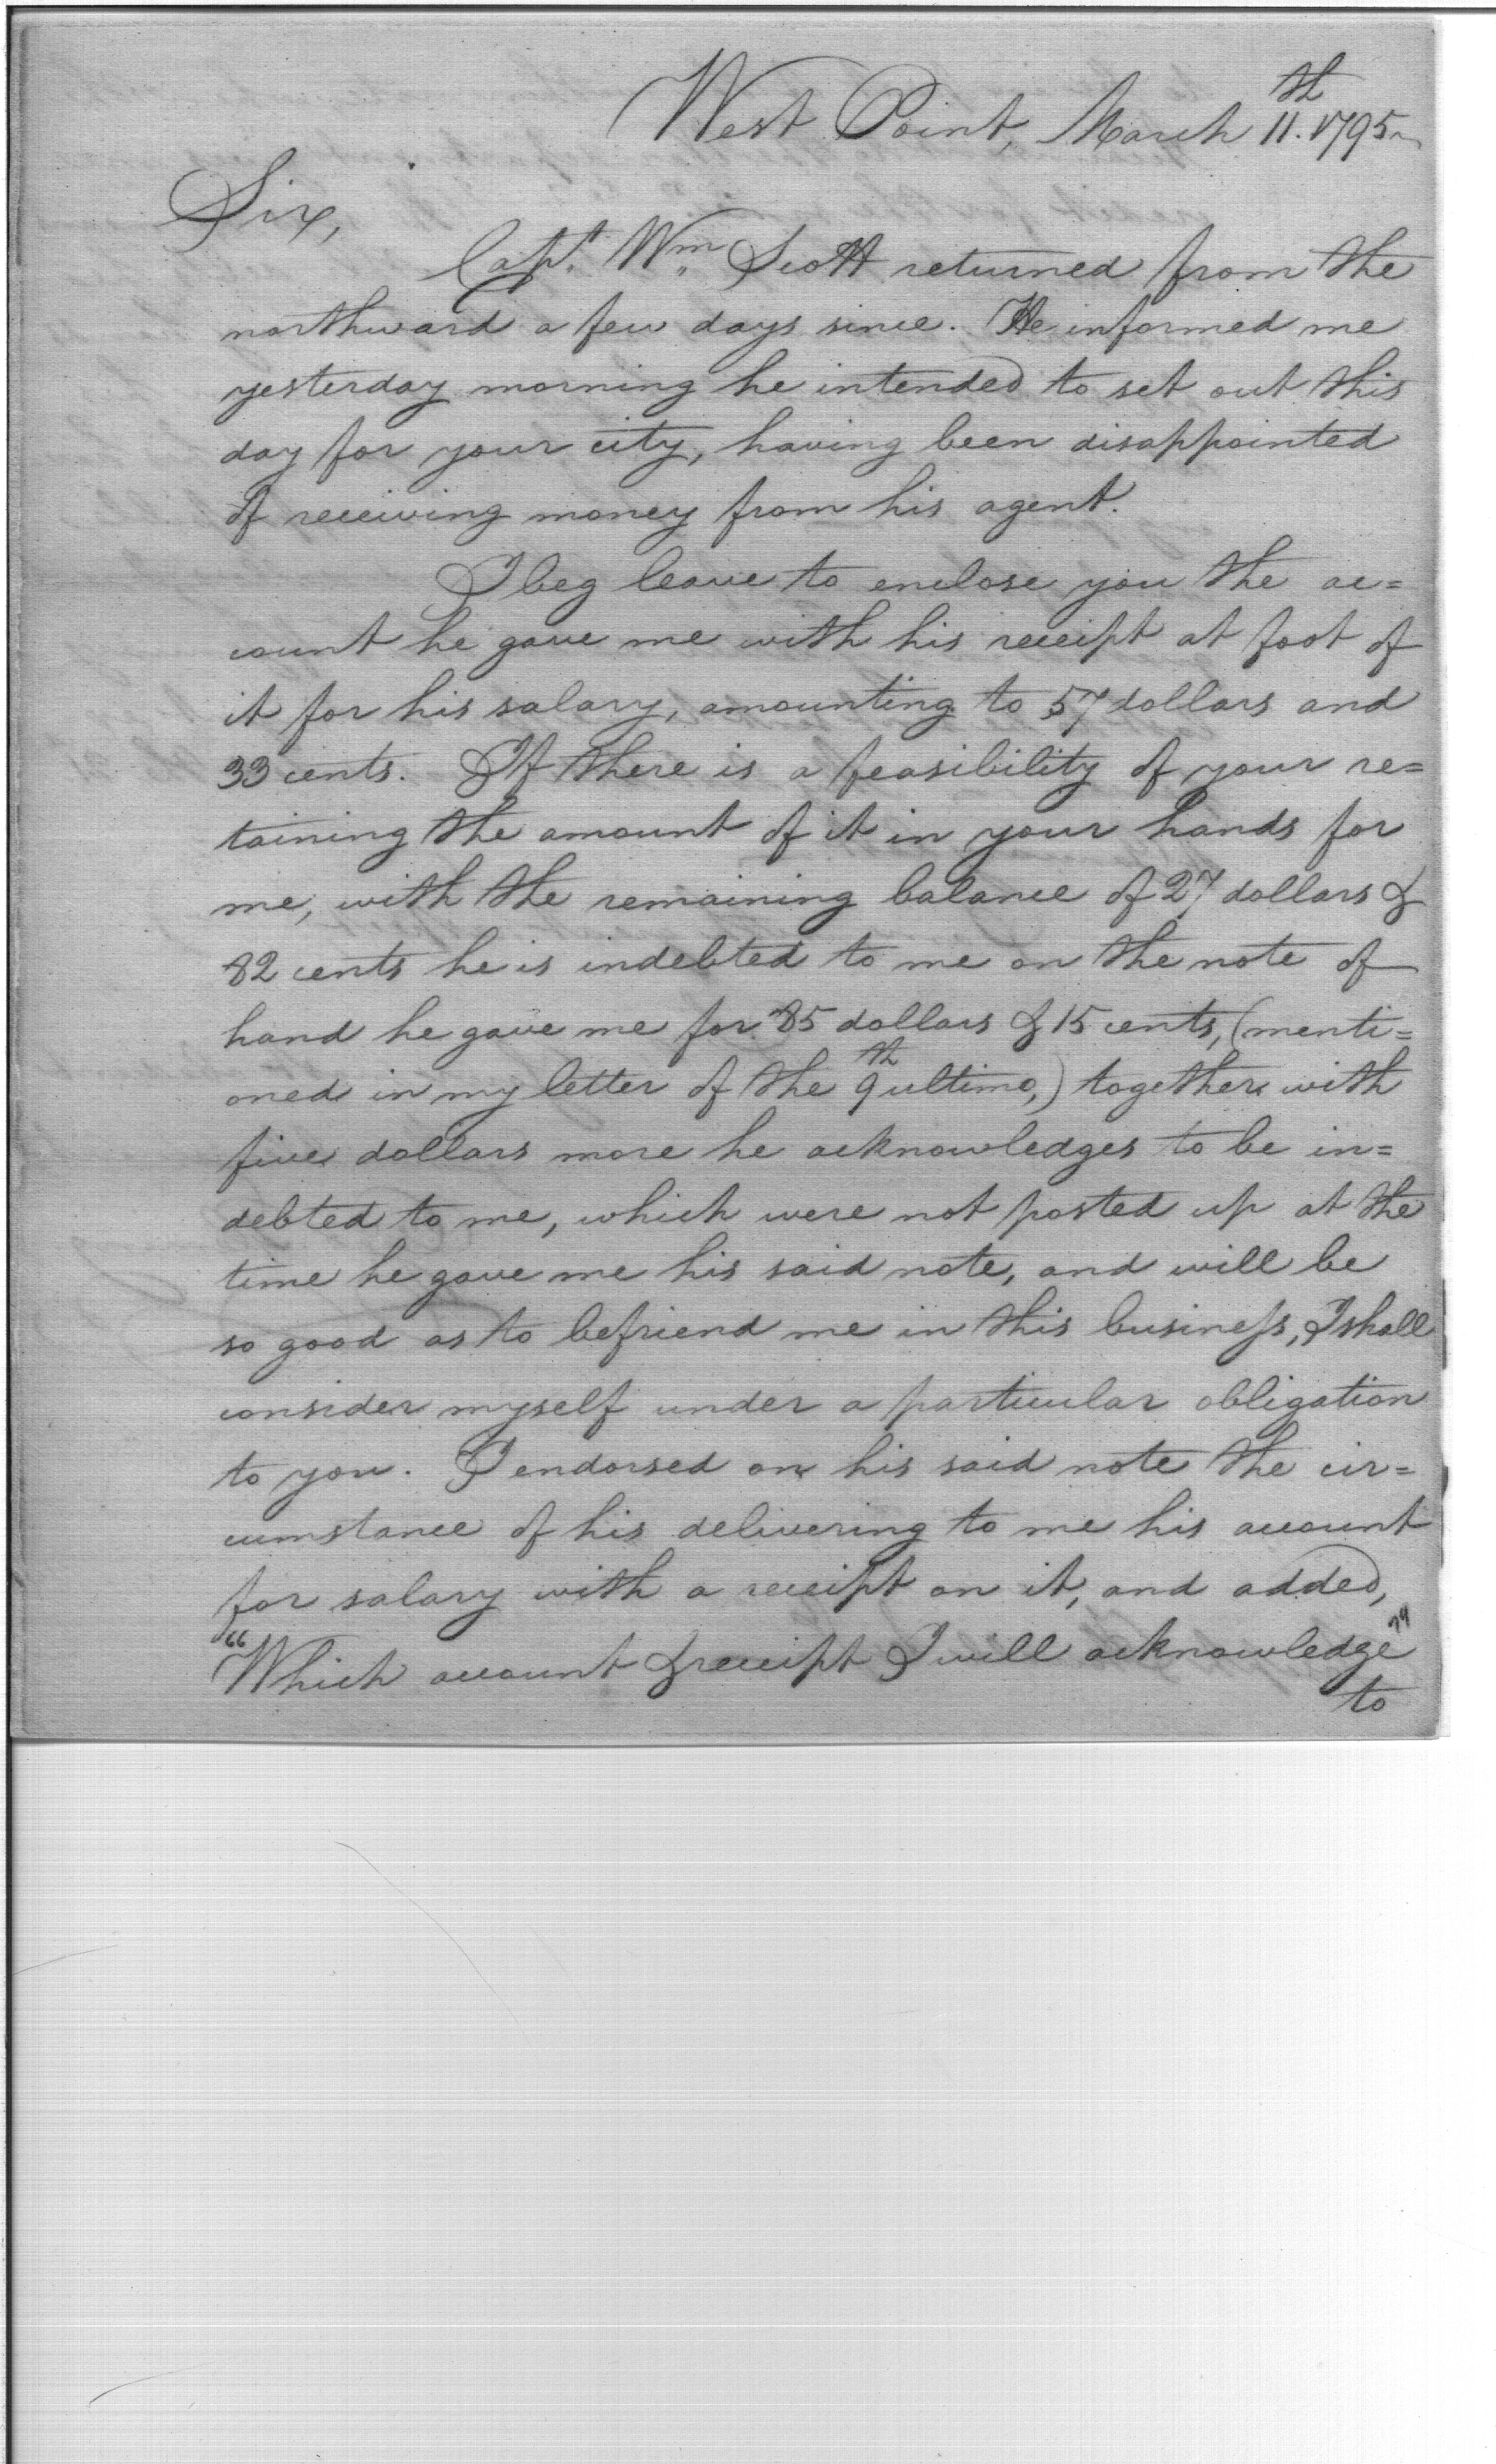 West Point, March 11.th 1795
Sir,
Capt. Wm. Scott returned from the
northward a few days since. He informed me
yesterday morning he intended to set out this
day for your city, having been disappointed
of receiving money from his agent.
I beg leave to enclose you the ac=
count he gave me with his receipt at foot of
it for his salary, amounting to 57 dollars and
33 cents. If there is a feasibility of your re=
taining the amount of it in your hands for
me, with the remaining balance of 27 dollars &
82 cents he is indebted to me on the note of
hand he gave me for 85 dollars & 15 cents, (menti=
oned in my letter of the 9th ultimo,) together with
five dollars more he acknowledges to be in=
debted to me, which were not posted up at the
time he gave me his said note, and will be
so good as to befriend me in this business, I shall
consider myself under a particular obligation
to you. I endorsed on his said note the cir=
cumstance of his delivering to me his account
for salary with a receipt on it, and added,
"Which account & receipt I will acknowledge"
to